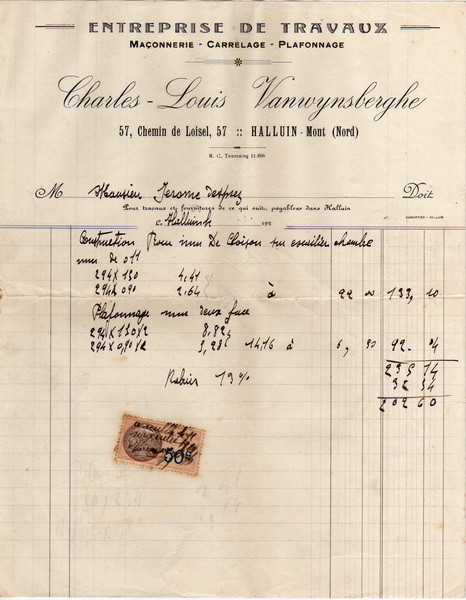 ENTREPRISE DE TRAVAUX
MAÇONNERIE - CARRELAGE - PLAFONNAGE
Charles-Louis Vanwynsberghe
57, Chemin de Loisel, 57 :: HALLUIN-Mont (Nord)
R. C. Tourcoing 11.608
M Monsieur Jerome Desprez Doit
Pour travaux et fournitures de ce qui suit, payables dans Halluin
Halluin 192
Construction Pour mur De Cloison sur escaillier chambre
mur de 011
294 X 150 4,41
294 X 090 2,64 à 22 133, 10
Plafonnage mur deux face
294 X 150 X 2 8,82
294 X 0,90 X 2 5,28 14,16 à 6, 50 92. 04
235 14
Rabais 13% 32 54
202 60
50c